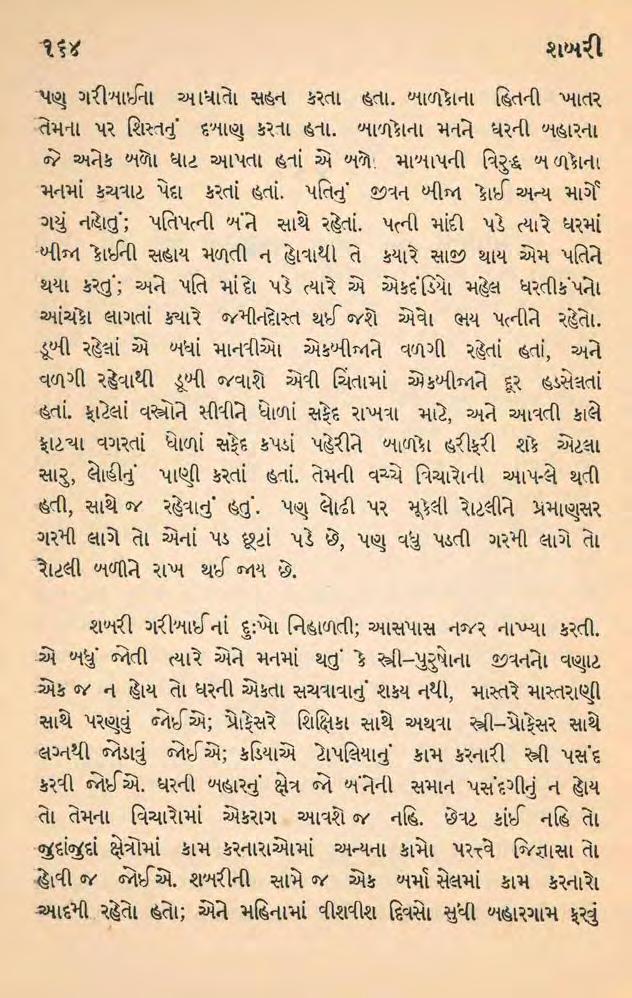 ૧૬૪ શબરી
પણ ગરીબાઈના આઘાતો સહન કરતા હતા. બાળકોના હિતની ખાતર
તેમના પર શિસ્તનું દબાણ કરતા હતા. બાળકોના મનને ઘરની બહારના
જે અનેક બળો ઘાટ આપતા હતાં એ બળો માબાપની વિરુદ્ધ બાળકોના
મનમાં કચવાટ પેદા કરતાં હતાં. પતિનું જીવન બીજા કોઈ અન્ય માર્ગે
ગયું નહોતું; પતિપત્ની બંને સાથે રહેતાં. પત્ની માંદી પડે ત્યારે ઘરમાં
બીજા કોઈની સહાય મળતી ન હોવાથી તે ક્યારે સાજી થાય એમ પતિને
થયા કરતું; અને પતિ માંદો પડે ત્યારે એ એકદંડિયો મહેલ ધરતીકંપનો
આંચકો લાગતાં ક્યારે જમીનદોસ્ત થઈ જશે એવો ભય પત્નીને રહેતો.
ડૂબી રહેલાં એ બધાં માનવીઓ એકબીજાને વળગી રહેતાં હતાં, અને
વળગી રહેવાથી ડૂબી જવાશે એવી ચિંતામાં એકબીજાને દૂર હડસેલતાં
હતાં. ફાટેલાં વસ્ત્રોને સીવીને ધોળાં સફેદ રાખવા માટે, અને આવતી કાલે
ફાટ્યા વગરતાં ધોળાં સફેદ કપડાં પહેરીને બાળકો હરીફરી શકે એટલા
સારુ, લોહીનું પાણી કરતાં હતાં. તેમની વચ્ચે વિચારોની આપ-લે થતી
હતી, સાથે જ રહેવાનું હતું. પણ લોઢી પર મૂકેલી રોટલીને પ્રમાણસર
ગરમી લાગે તો એનાં પડ છૂટાં પડે છે, પણ વધુ પડતી ગરમી લાગે તો
રોટલી બળીને રાખ થઈ જાય છે.
શબરી ગરીબાઈનાં દુઃખો નિહાળતી; આસપાસ નજર નાખ્યા કરતી.
એ બધું જોતી ત્યારે એને મનમાં થતું કે સ્ત્રી–પુરુષોના જીવનનો વણાટ
એક જ ન હોય તો ઘરની એકતા સચવાવાનું શક્ય નથી, માસ્તરે માસ્તરાણી
સાથે પરણવું જોઈએ; પ્રોફેસરે શિક્ષિકા સાથે અથવા સ્ત્રી–પ્રોફેસર સાથે
લગ્નથી જોડાવું જોઈએ; કડિયાએ ટોપલિયાનું કામ કરનારી સ્ત્રી પસંદ
કરવી જોઈએ. ઘરની બહારનું ક્ષેત્ર જો બંનેની સમાન પસંદગીનું ન હોય
તો તેમના વિચારોમાં એકરાગ આવશે જ નહિ. છેવટ કાંઈ નહિ તો
જુદાંજુદાં ક્ષેત્રોમાં કામ કરનારાઓમાં અન્યના કામો પરત્વે જિજ્ઞાસા તો
હોવી જ જોઈએ. શબરીની સામે જ એક બર્મા સેલમાં કામ કરનારો
આદમી રહેતો હતો; એને મહિનામાં વીશવીશ દિવસો સુધી બહારગામ ફરવું